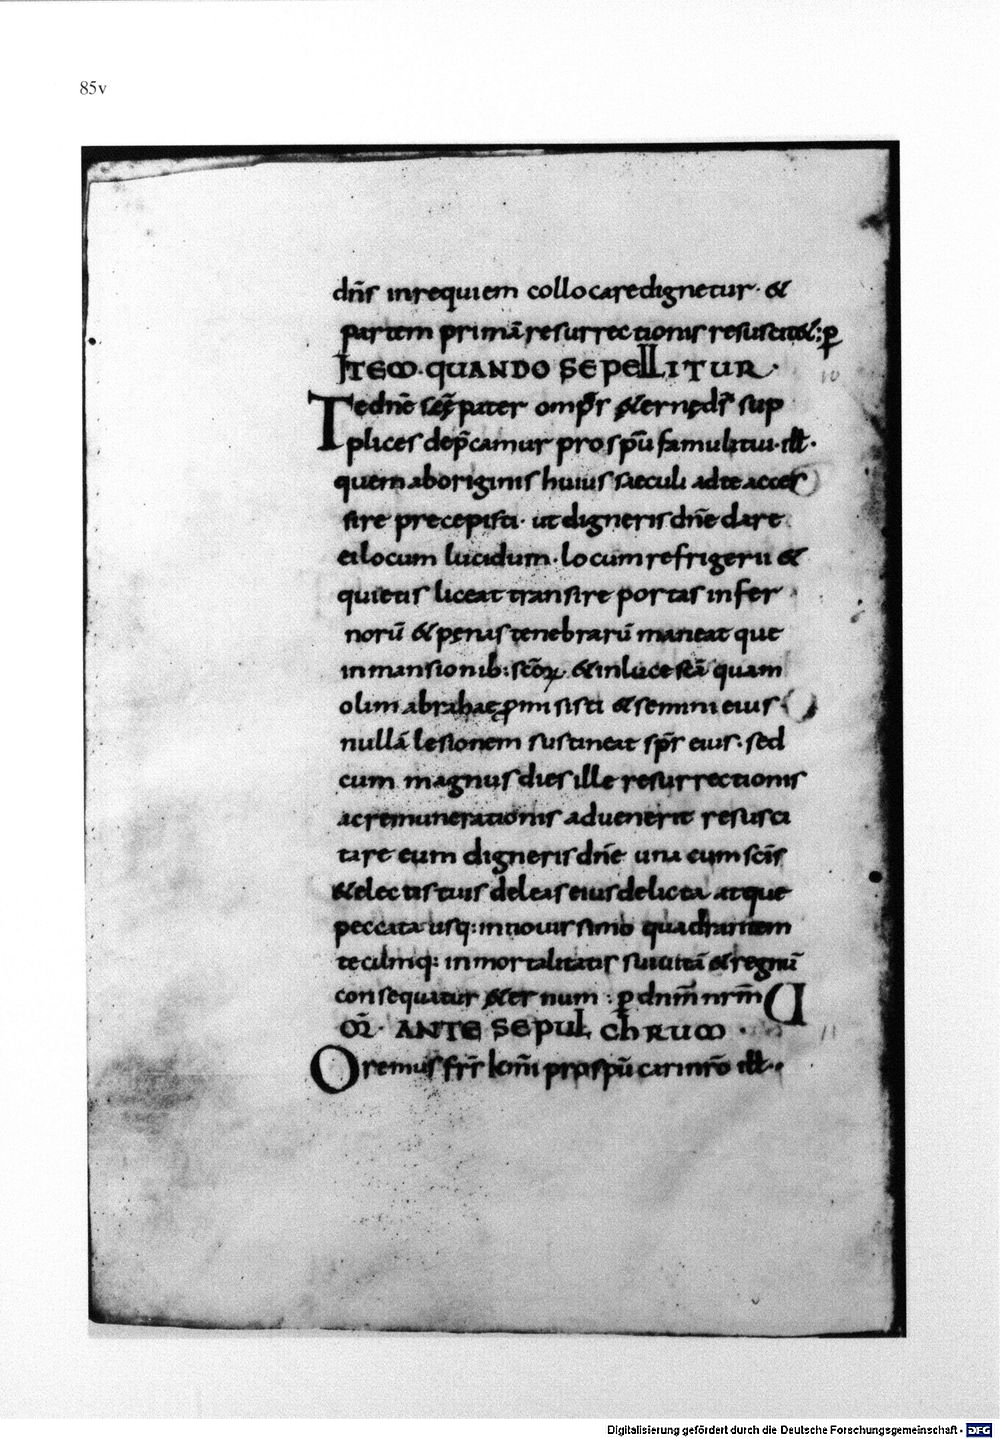 85v
dn̄s inrequiem collocaredignetur· &
partem primā resurrectionis resuscit&: p̱
ITEM· QUANDO SEPELLITUR·
Tedn̄e sc̄ę pater omp̄s &ernęds̄ sup
plices dep̄camur prosp̄u famulitui· ill̄·
quem aboriginis huius saeculi adteacces
sire precepisti· utdigneris dn̄e dare
eilocum lucidum· locum refrigerii &
quietis liceat transire portas infer
norū & pęnas tenebrarū maneat que
inmansionib: sc̄oꝝ· &inluce sc̄a quam
olim abrahae ꝓmisisti &semini eius·
nullā lesionem sustineat sp̄s eius· sed
cum magnus dies ille resurrectionis
acremunerationis aduenerit resusci
tare eum digneris dn̄e una cum sc̄is
&electis tuis deleas eius delicta atque
peccata usq: innouissimō quadrantem
tecumq: inmortalitatis suiuitā &regnū
consequatur &ernum : p̱ dnm̄ nrm̄
OR̄· ANTE SEPULCHRUM·
Oremus fr̄s km̄i prosp̄u carinrō ill̄··
10
11
Digitalisierung gefördert durch die Deutsche Forschungsgemeinschaft - DFG